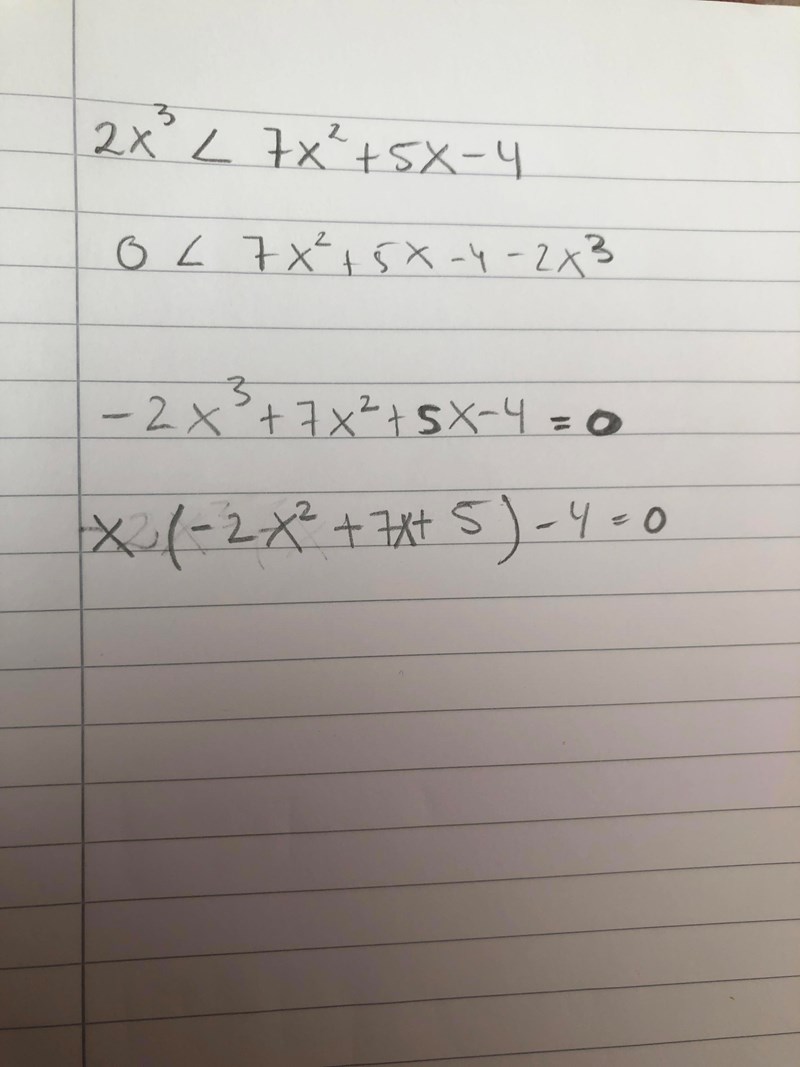 2x³ < 7x² + 5x - 4
0 < 7x² + 5x - 4 - 2x³
-2x³ + 7x² + 5x - 4 = 0
x(-2x² + 7x + 5) - 4 = 0